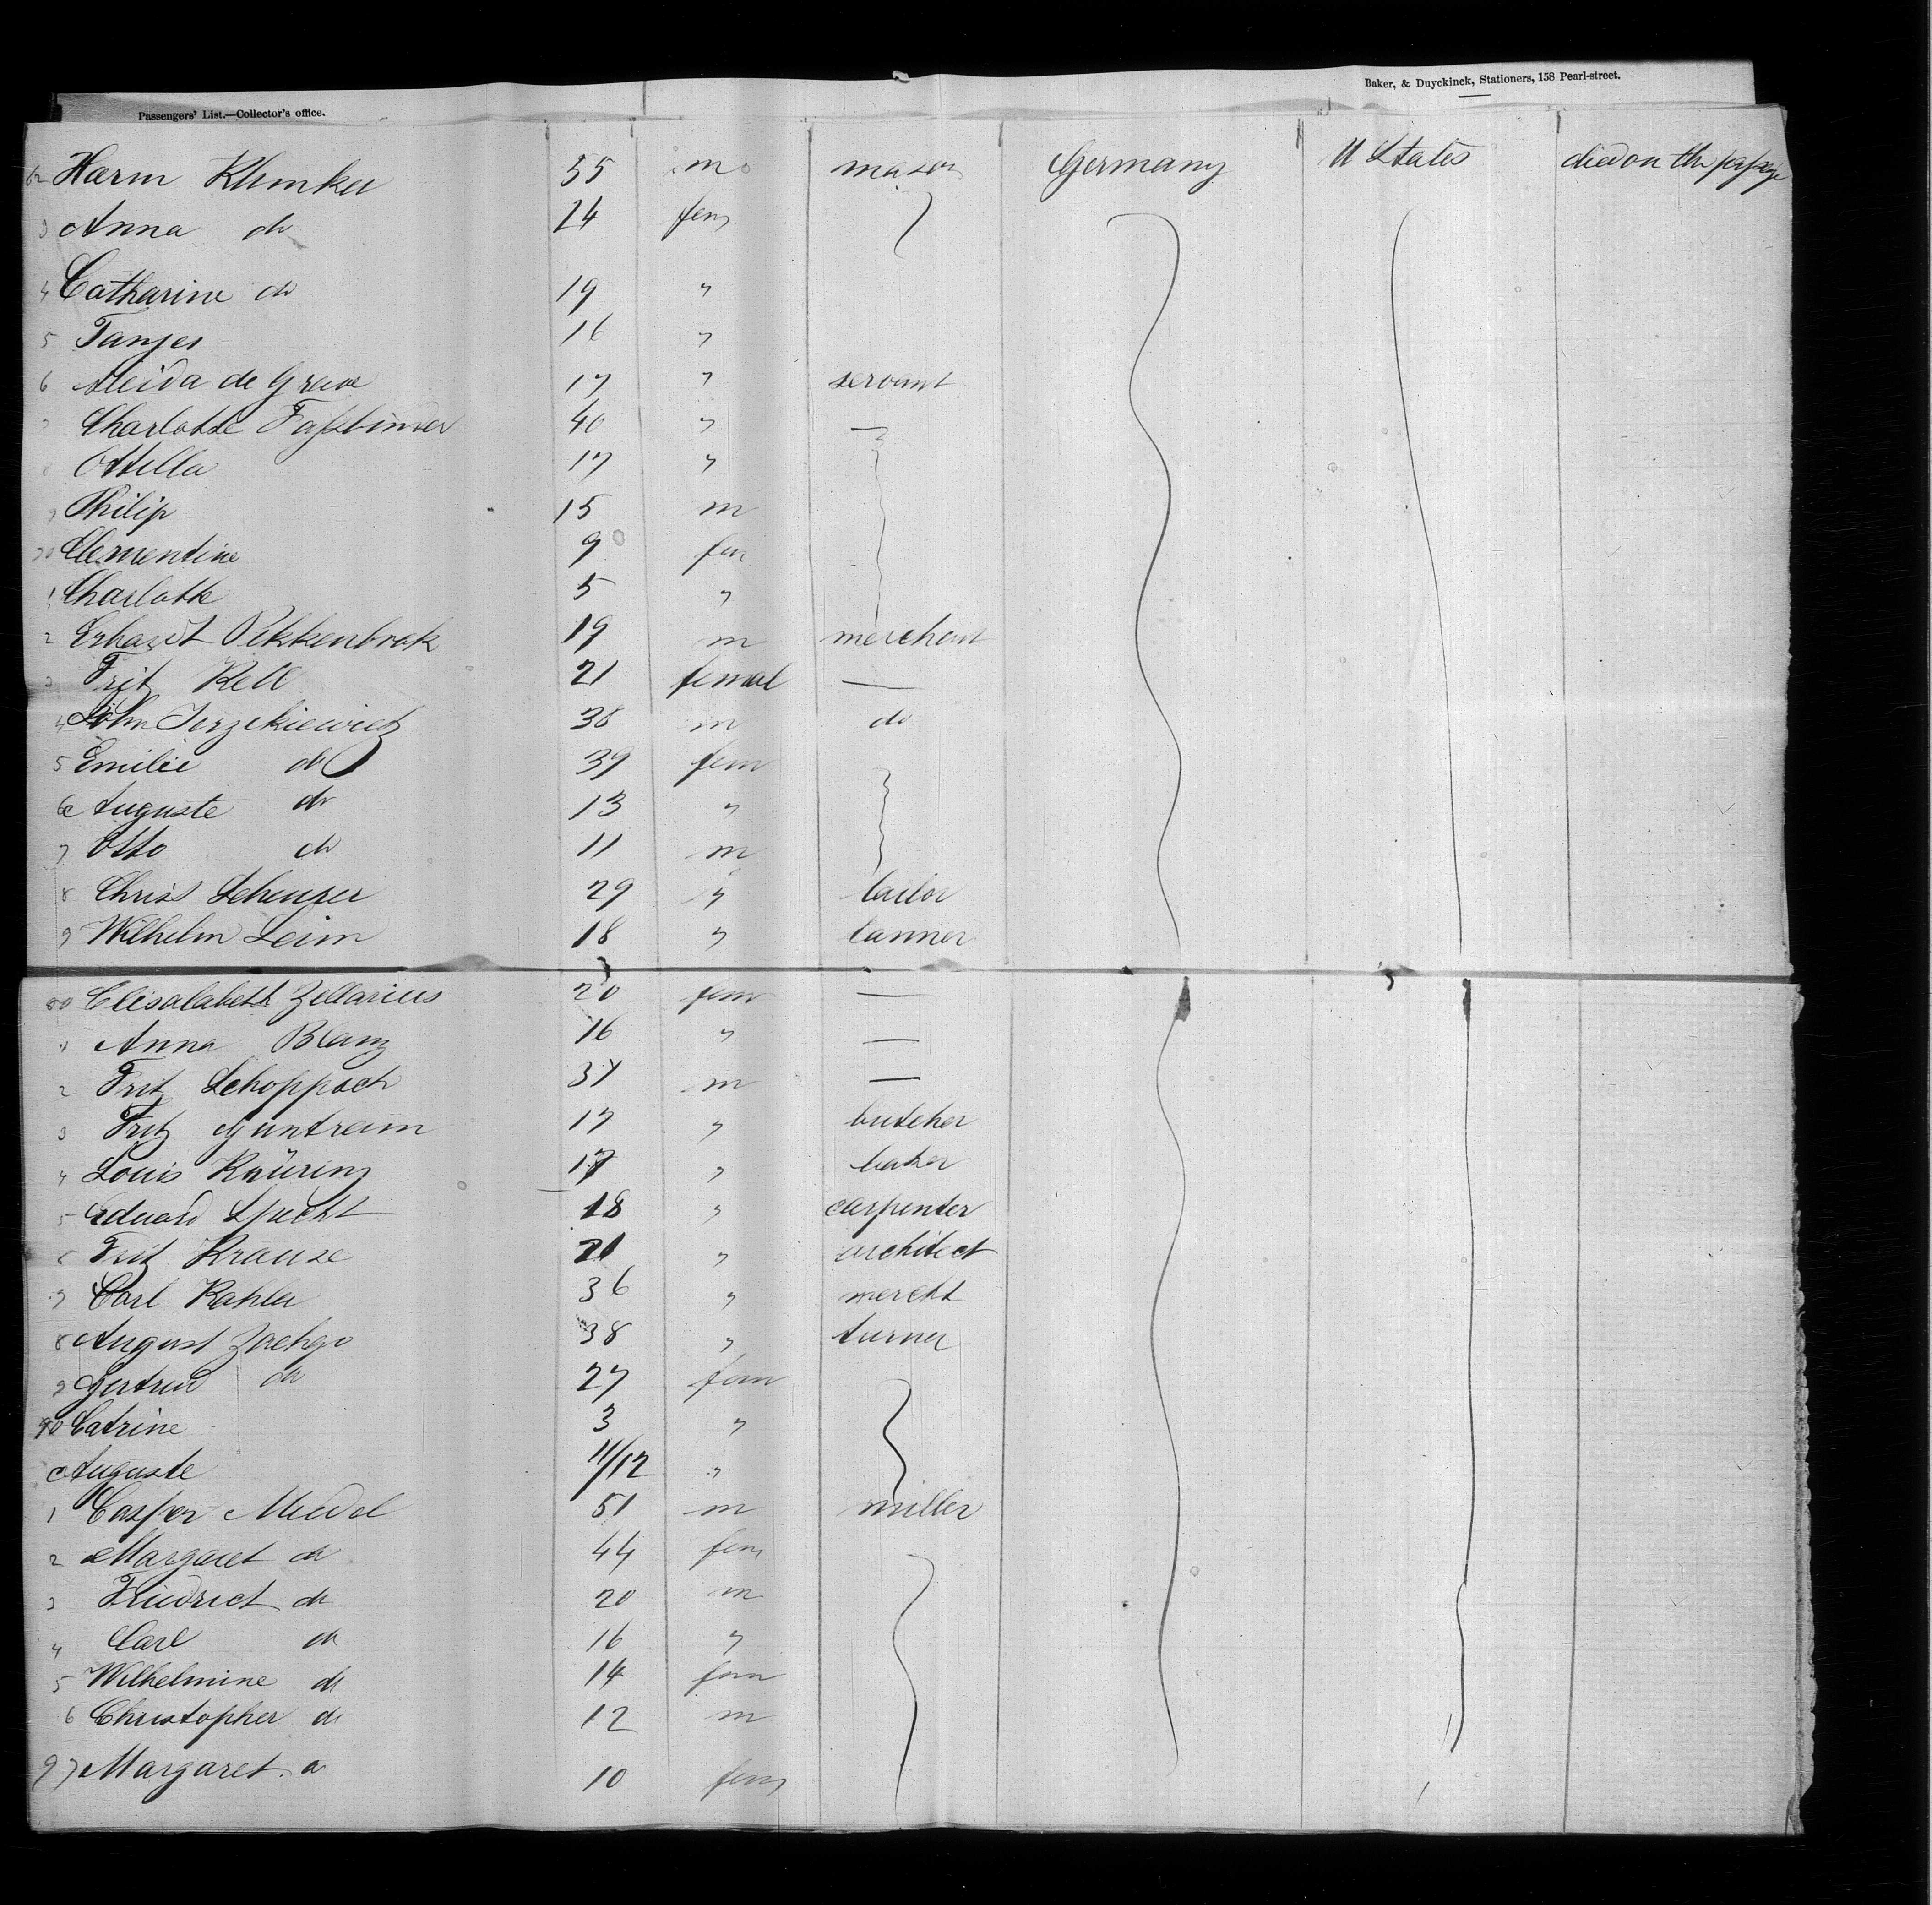 Baker, & Duyckinck, Stationers, 158 Pearl-street.
Passengers' List.—Collector's office.
62 Harm Klumker 55 m mason Germany U States died on the passage
3 Anna do 24 fem
4 Catharine do 19 "
5 Tanjes 16 "
6 Aleida de Grave 17 " servant
7 Charlotte Faßbinder 40 " —
8 Ottilla 17 "
9 Philip 15 m
70 Clementine 9 fem
1 Charlotte 5 "
2 Erhardt Pekkenbrok 19 m merchant
3 Fritz Kell 21 femal —
4 John Jerzekiewicz 38 m do
5 Emilie do 39 fem
6 Auguste do 13 "
7 Otto do 11 m
8 Christ Scheuzer 29 " tailor
9 Wilhelm Leim 18 " tanner
80 Elisalabeth Zellarius 20 fem —
1 Anna Blanz 16 " —
2 Fritz Schoppach 37 m —
3 Fritz Guntram 17 " butcher
4 Louis Knüring 17 " baker
5 Eduard Specht 18 " carpenter
6 Fritz Krause 21 " architect
7 Carl Kahler 36 " mercht
8 August Zachgo 38 " turner
9 Gertrud do 27 fem
90 Catrine 3 "
Auguste 11/12 "
1 Casper Miedel 51 m miller
2 Margaret do 44 fem
3 Friedrict do 20 m
4 Carl do 16 "
5 Wilhelmine do 14 fem
6 Christopher do 12 m
97 Margaret 10 fem